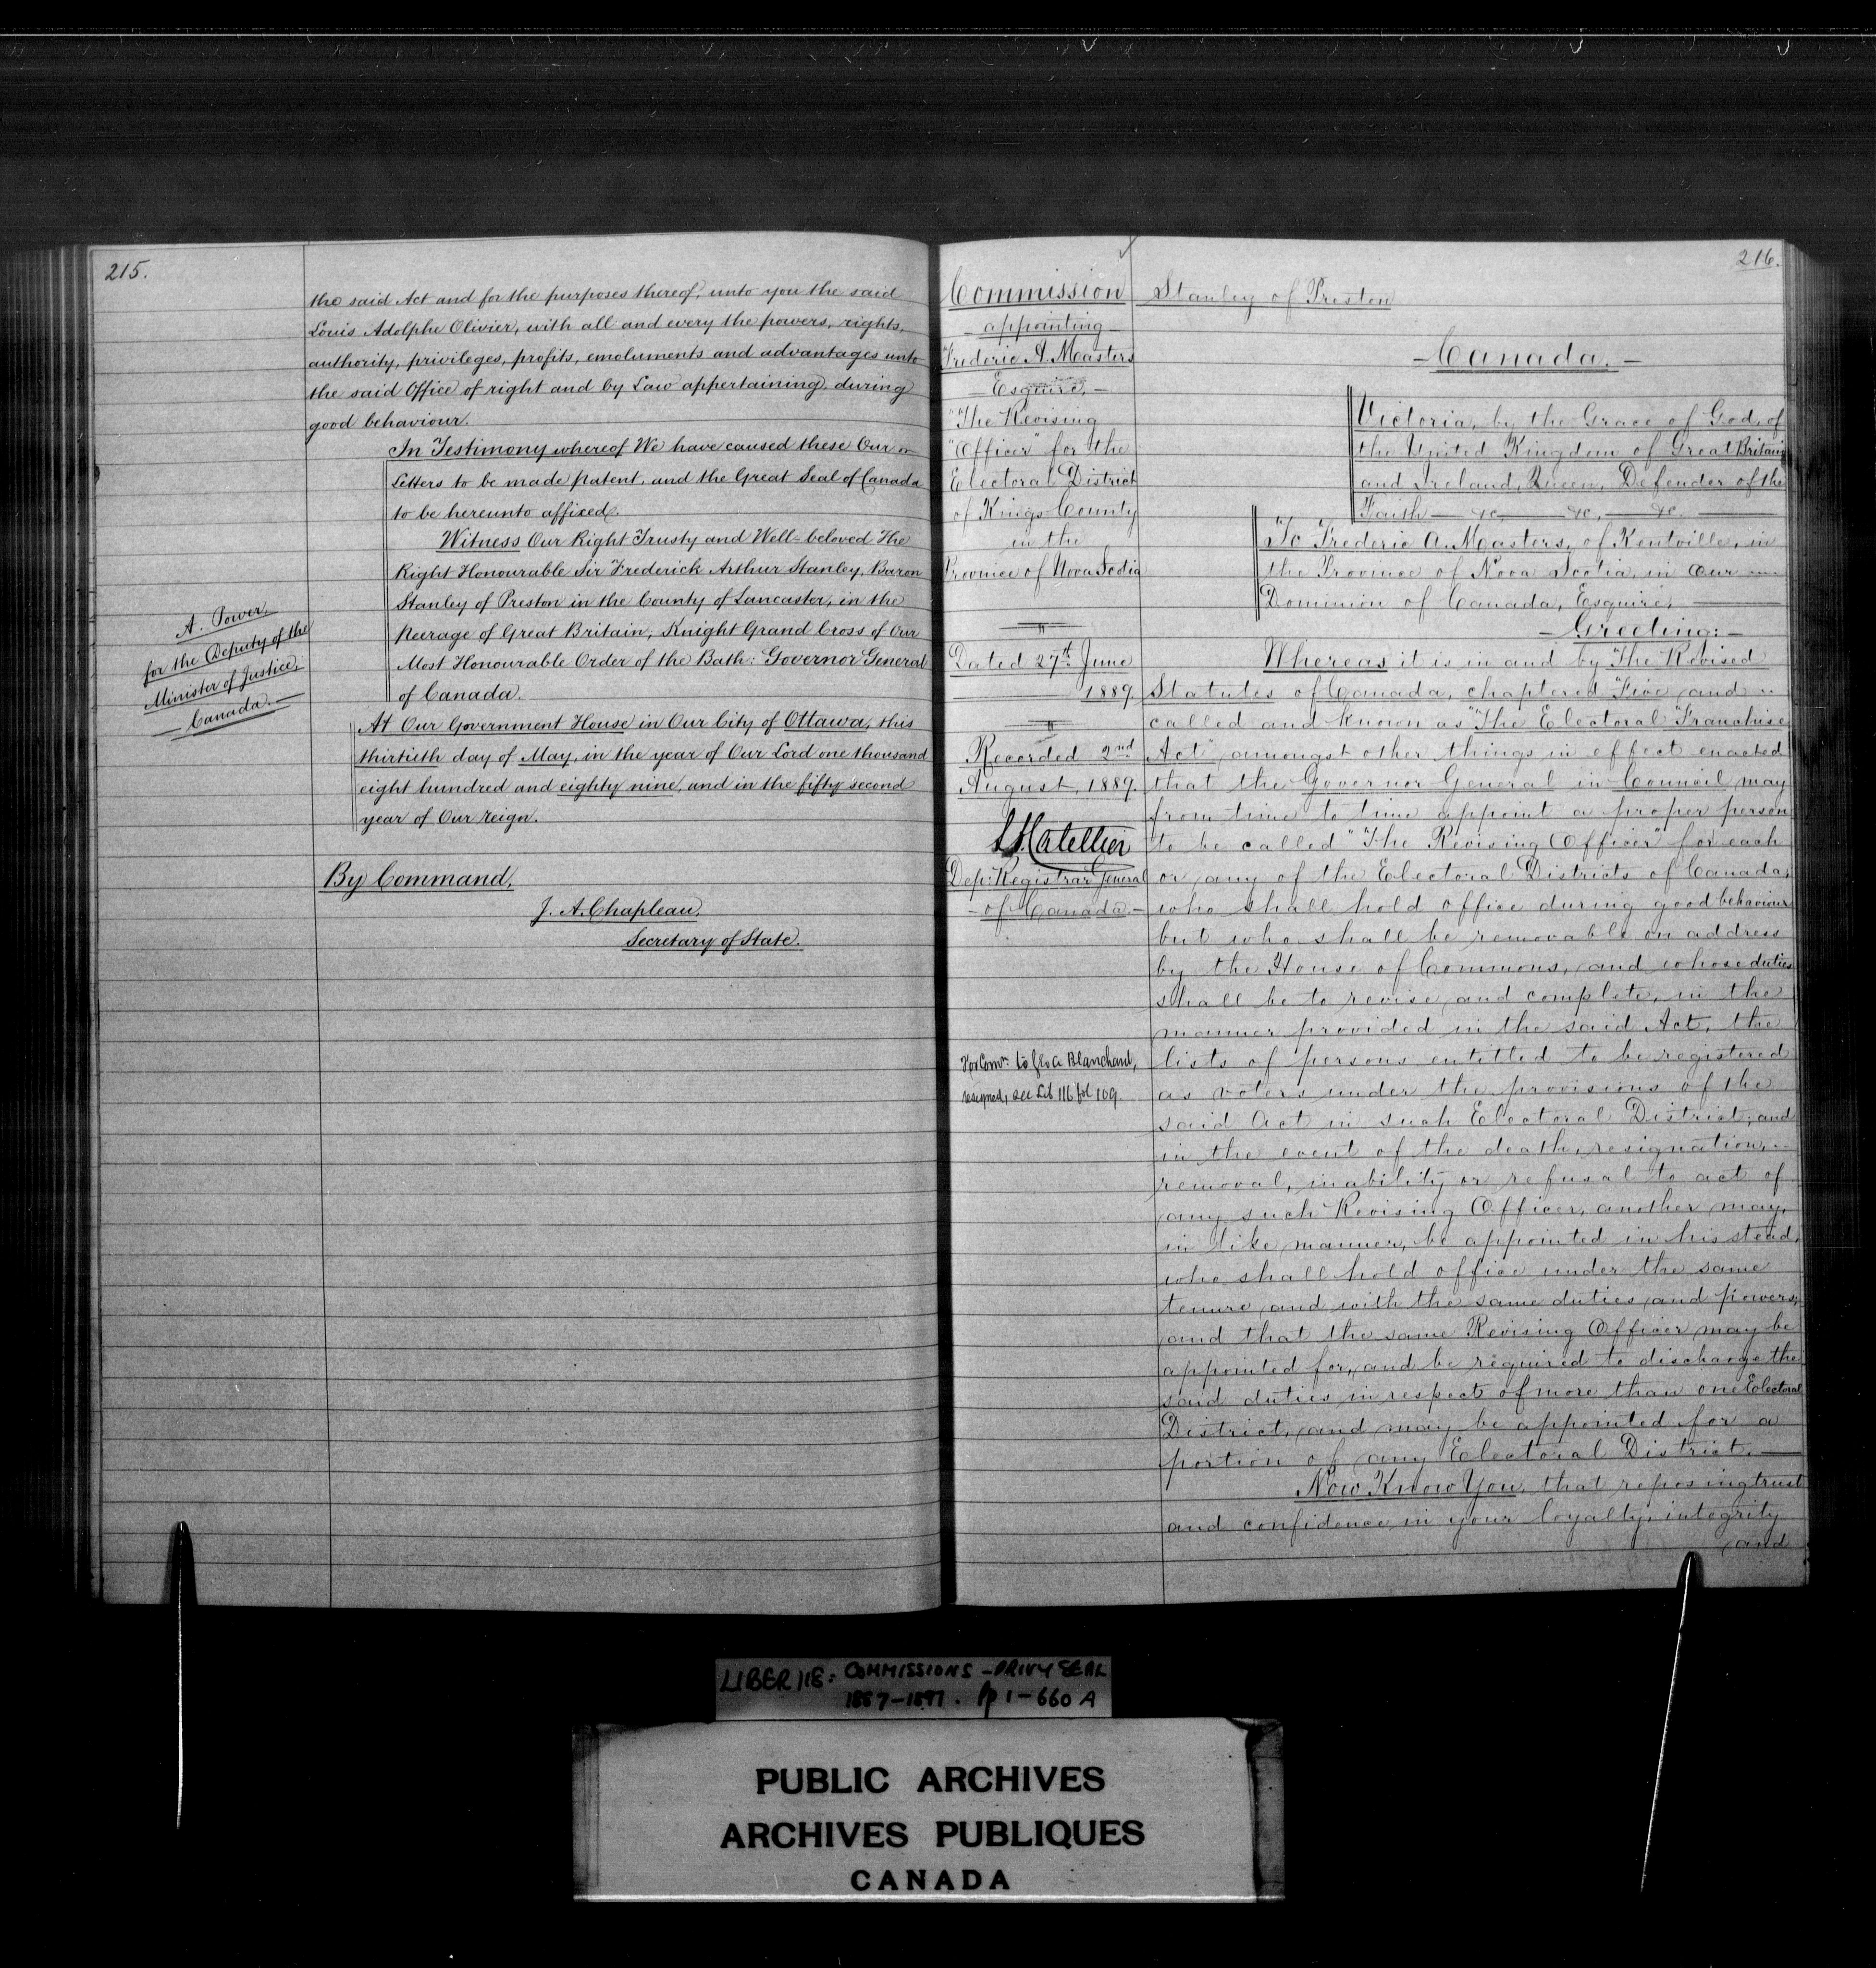 215.
the said Act and for the purposes thereof, unto you the said
Louis Adolphe Olivier, with all and every the powers, rights,
authority, privileges, profits, emoluments and advantages unto
the said Office of right and by Law appertaining, during
good behaviour.
In Testimony whereof We have caused these Our
Letters to be made patent, and the Great Seal of Canada
to be hereunto affixed.
Witness Our Right Trusty and Well-beloved The
Right Honourable Sir Frederick Arthur Stanley, Baron
Stanley of Preston in the County of Lancaster, in the
Peerage of Great Britain; Knight Grand Cross of Our
Most Honourable Order of the Bath: Governor General
of Canada.
At Our Government House in Our City of Ottawa, this
thirtieth day of May, in the year of Our Lord one thousand
eight hundred and eighty nine, and in the fifty second
year of Our reign.
By Command,
J. A. Chapleau,
Secretary of State.
A. Power,
for the Deputy of the
Minister of Justice,
Canada.
216.
Commission
appointing
Frederic A. Masters
Esquire,
"The Revising
"Officer" for the
Electoral District
of Kings County
in the
Province of Nova Scotia
Dated 27th June
1889.
Recorded 2nd
August, 1889.
Dep: Registrar General
of Canada.
For Comn. to Geo. A. Blanchard,
resigned, see Lib 116 fol 109.
Stanley of Preston
Canada.
Victoria, by the Grace of God, of
the United Kingdom of Great Britain
and Ireland, Queen, Defender of the
Faith &c, &c, &c.
To Frederic A. Masters, of Kentville, in
the Province of Nova Scotia, in Our
Dominion of Canada, Esquire,
Greeting:
Whereas it is in and by "The Revised
Statutes of Canada, chaptered "Five, and
called and known as "The Electoral "Franchise
Act", amongst other things in effect enacted
that the Governor General in Council may
from time to time appoint a proper person
to be called "The Revising Officer" for each
or any of the Electoral Districts of Canada,
who shall hold office during good behaviour
but who shall be removable on address
by the House of Commons, and whose duties
shall be to revise and complete, in the
manner provided in the said Act, the
lists of persons entitled to be registered
as voters under the provisions of the
said Act in such Electoral District; and
in the event of the death, resignation,
removal, inability or refusal to act of
any such Revising Officer, another may,
in like manner, be appointed in his stead,
who shall hold office under the same
tenure and with the same duties and powers;
and that the same Revising Officer may be
appointed for, and be required to discharge the
said duties in respect of more than one Electoral
District, and may be appointed for a
portion of any Electoral District.
Now Know You, that reposing trust
and confidence in your loyalty, integrity
and
LIBER 118: COMMISSIONS - PRIVY SEAL
1887-1897. pp 1-660 A
PUBLIC ARCHIVES
ARCHIVES PUBLIQUES
CANADA